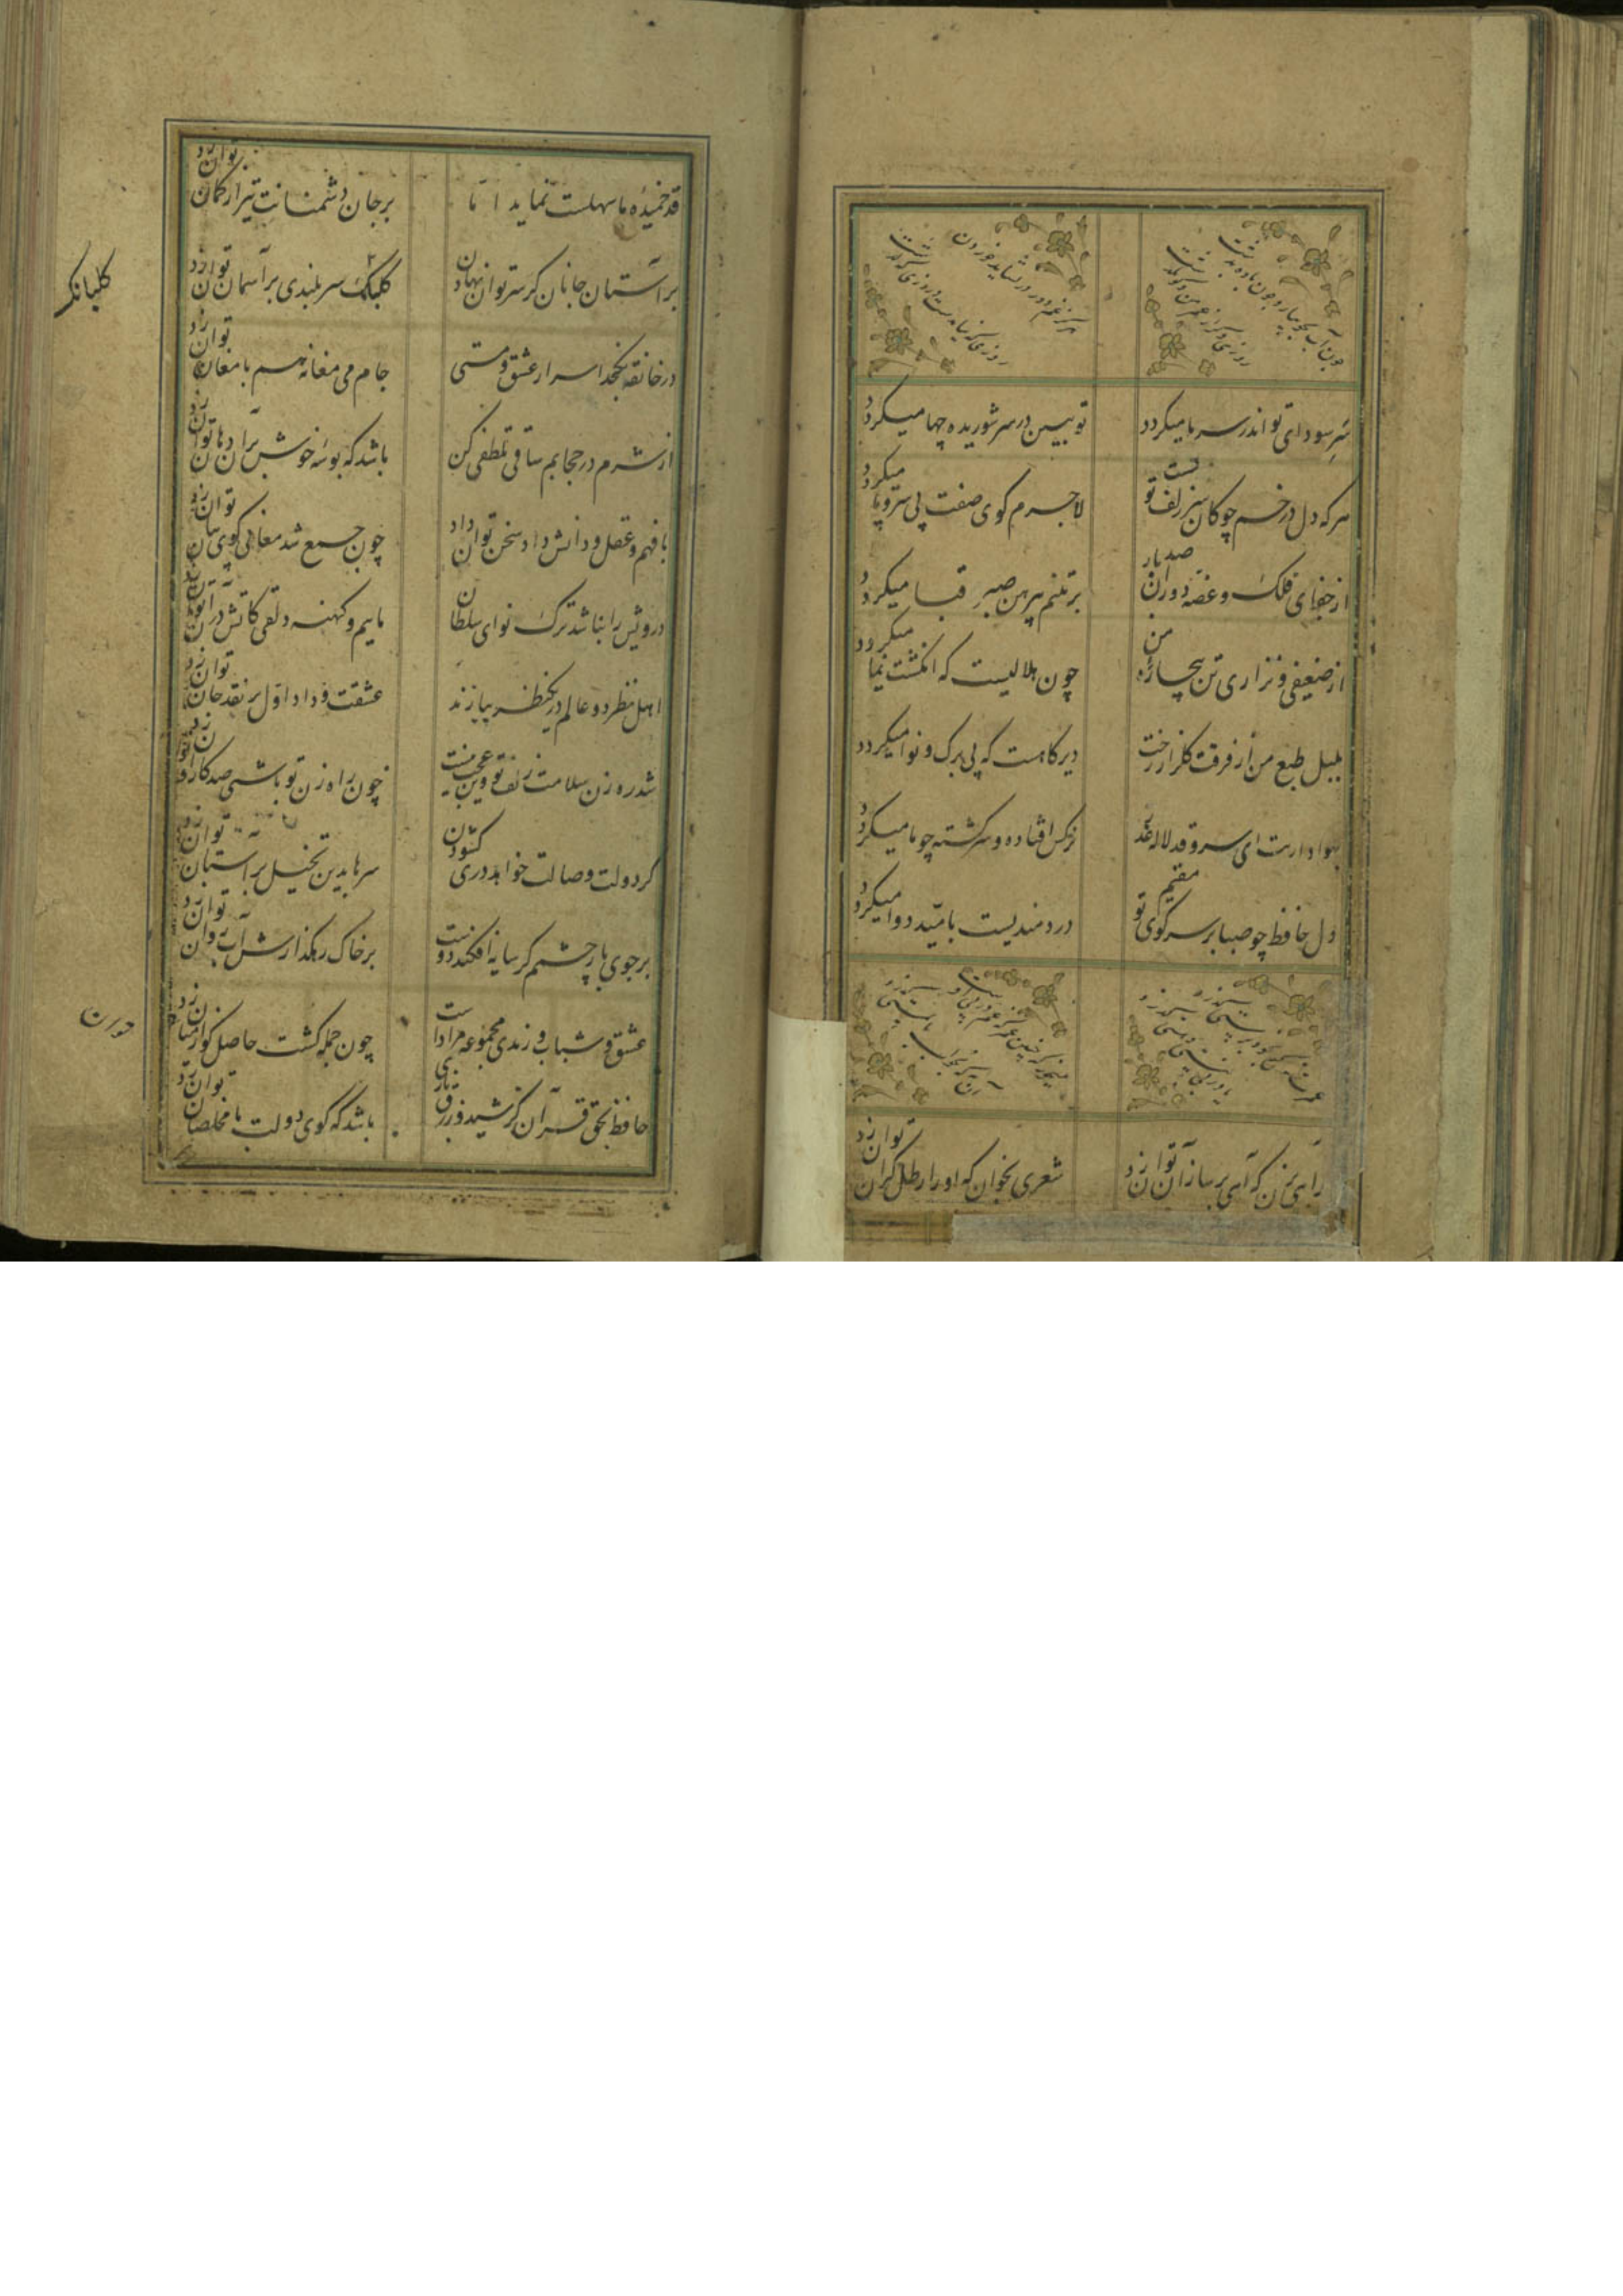 چون آب بجویبار و چون باد بدشت
روزی دگر از عمر من و تو بگذشت
هرگز غم دو روز نشاید خوردن
روزی که نیامدست و روزی که گذشت
سر سودای تو اندر سر ما میکردد
تو ببین در سر شوریده چها میکردد
هر که دل در خم چوکان سر زلف تو بست
لاجرم کوی صفت بی سر و پا میکردد
از جفای فلک و غصه دوران صد بار
بر تنم پیرهن صبر قبا میکردد
از ضعیفی و نزاری تن بیچاره من
چون هلالیست که انکشت نما میکردد
بلبل طبع من از فرقت کلزار رخت
دیرکاهست که بی برک و نوا میکردد
بهواداریت ای سرو قد لاله عذار
نرکس افتاده و سرکشته چو ما میکردد
دل حافظ چو صبا بر سر کوی تو مقیم
دردمندیست بامید دوا میکردد
راهی بزن که آهی بر ساز آن توان زد
شعری بخوان که او را رطل کران توان زد
قد خمیده ما سهلت نماید اما
بر جان دشمنانت تیر از کمان توان زد
بر آستان جانان کر سر توان نهادن
کلبانک سربلندی بر آسمان توان زد
کلبانک
در خانقه نکنجد اسرار عشق و مستی
جام می مغانه هم با مغان توان زد
از شرم در حجابم ساقی تلطفی کن
باشد که بوسه خوش بر آن دهان توان زد
با فهم و عقل و دانش داد سخن توان داد
چون جمع شد معانی کوی بیان توان زد
درویش را نباشد ترک نوای سلطان
ماییم و کهنه دلقی کاتش در آن توان زد
اهل نظر دو عالم در یک نظر ببازند
عشقست و داد اول بر نقد جان توان زد
شد رهزن سلامت زلف تو وین عجب نیست
چون راه زن تو باشی صد کاروان توان زد
کر دولت وصالت خواهد دری کشودن
سرها بدین تخیل بر آستان توان زد
بر جوی بار چشمم کر سایه افکند دوست
بر خاک رهکذارش آب روان توان زد
عشق و شباب و رندی مجموعه مرادست
چون جمله کشت حاصل کوی زمان توان زد
حافظ بحق قرآن کز شید و زرق باز آی
باشد که کوی دولت با مخلصان توان زد